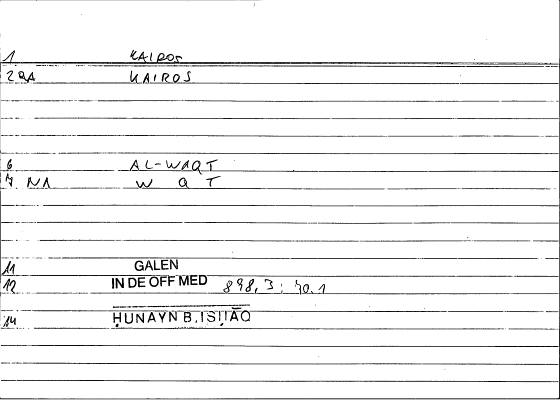 1 KAIROS
2 RA KAIROS
6 AL-WAQT
7 NA W Q T
11 GALEN
12 IN DE OFF MED 898,3 : 40.1
14 ḤUNAYN B.ISḤĀQ